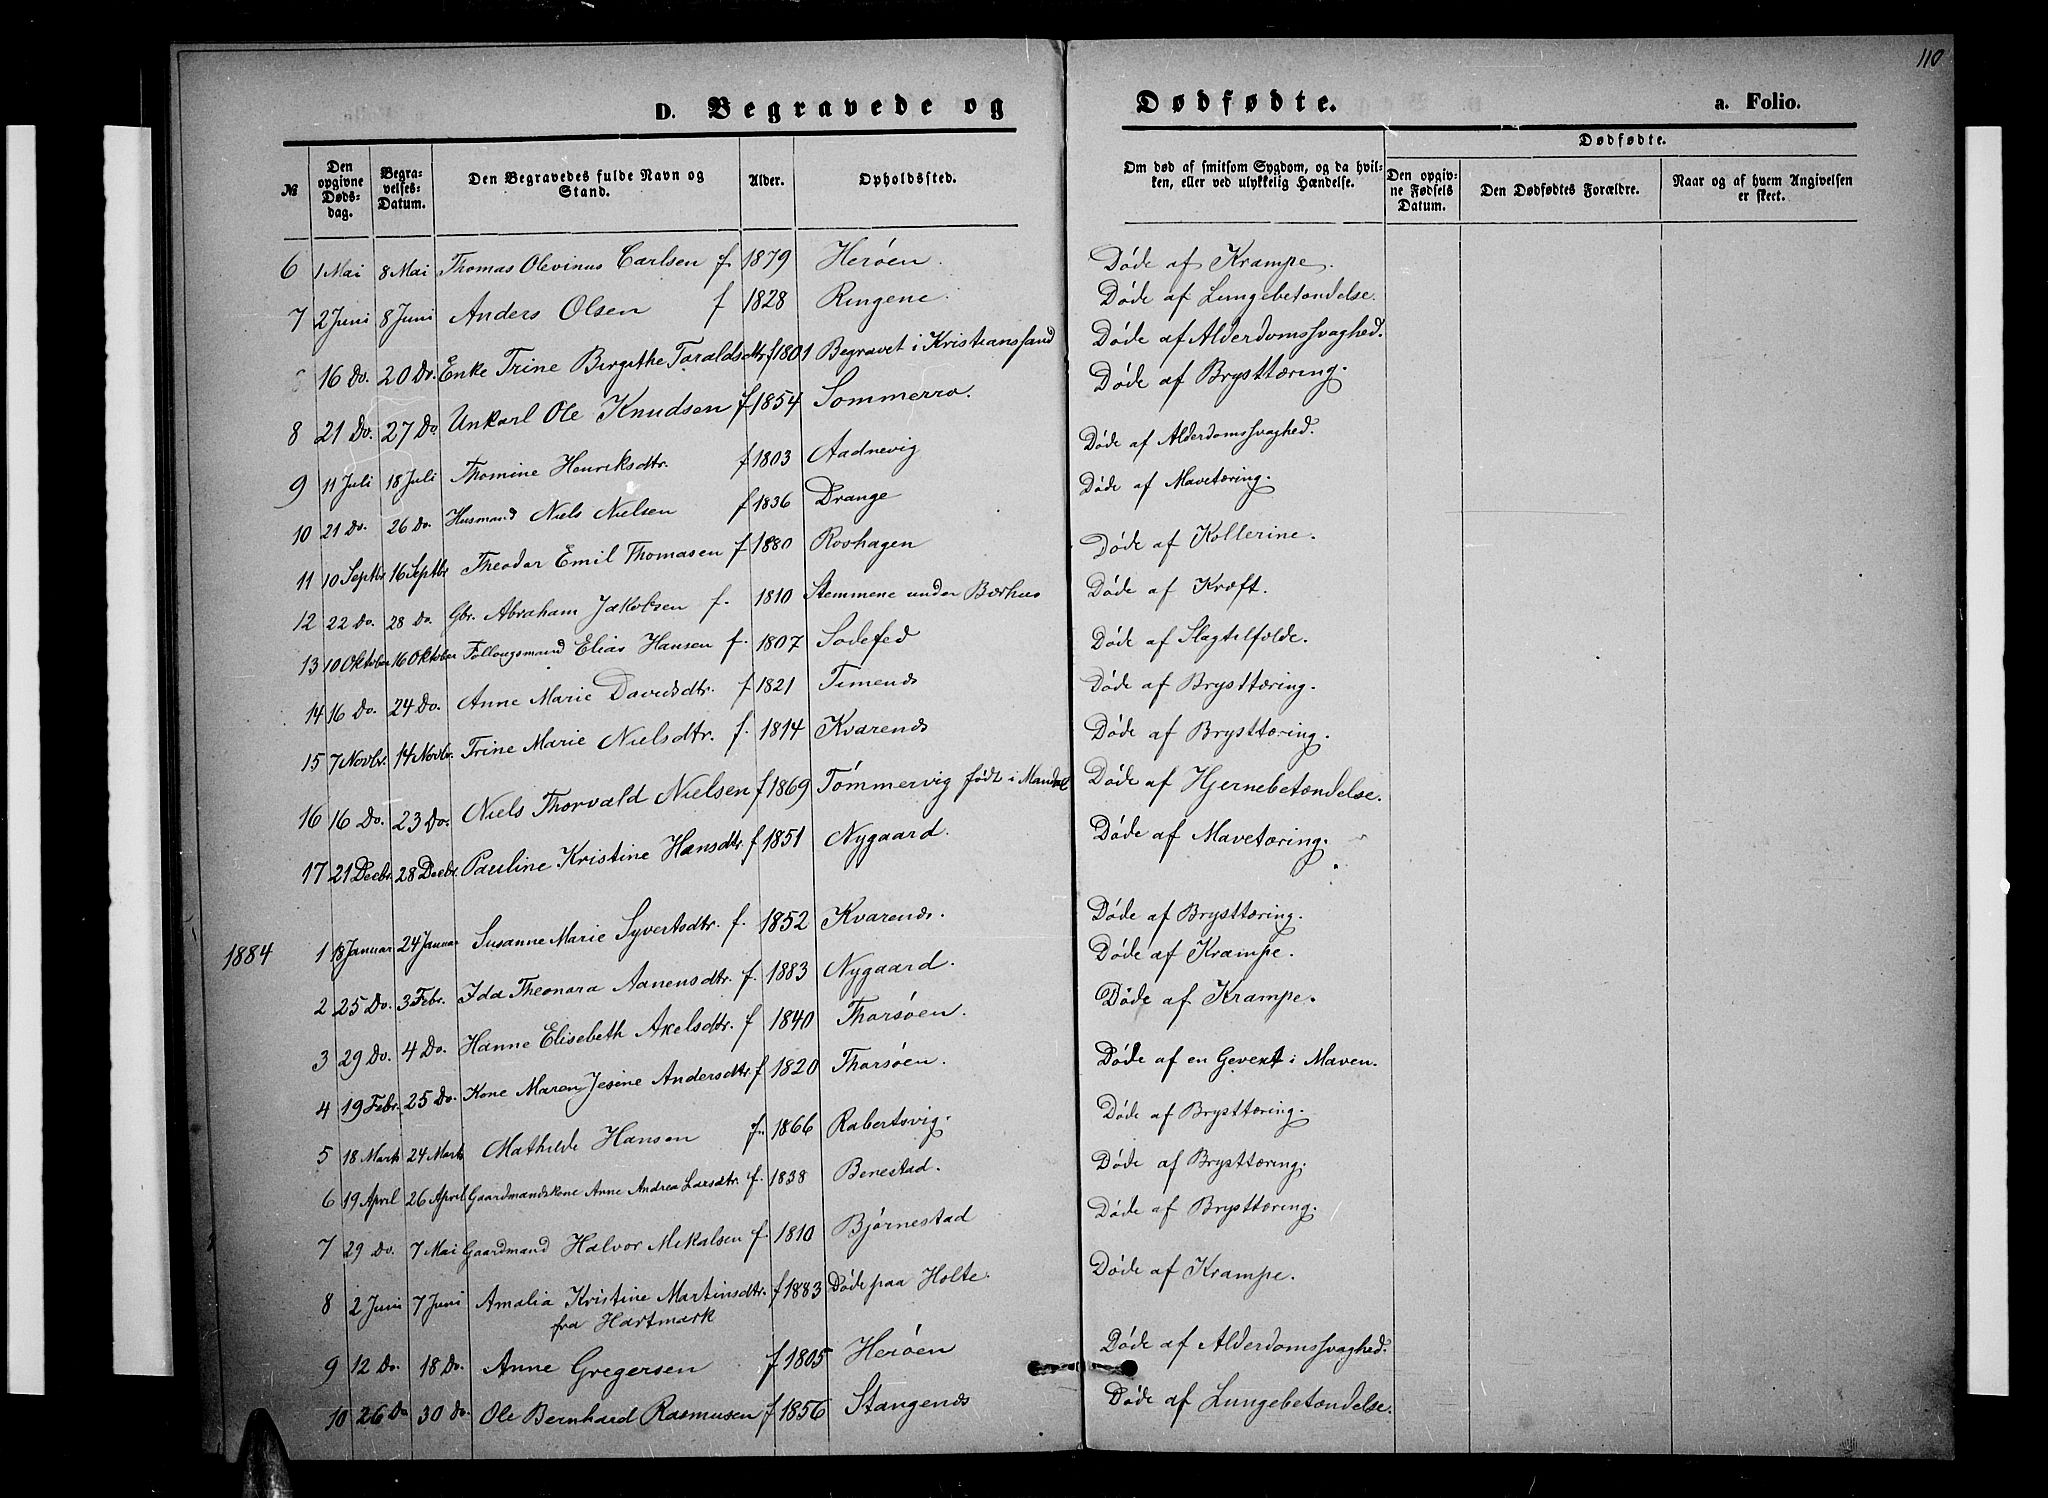 110
D. Begravede og Dødfødte. a. Folio.
№ Den opgivne Dødsdag. Begravelses-Datum. Den Begravedes fulde Navn og Stand. Alder. Opholdssted. Om død af smitsom Sygdom, og da hvilken, eller ved ulykkelig Hændelse. Dødfødte. Den opgivne Fødsels Datum. Den Dødfødtes Forældre. Naar og af hvem Angivelsen er skeet.
6 1 Mai 8 Mai Thomas Olevinus Carlsen f. 1879 Herøen. Døde af Krampe.
7 2 Juni 8 Juni Anders Olsen f 1828 Ringene. Døde af Lungebetændelse.
16 Do. 20 Do. Enke Trine Birgithe Taraldsdtr f 1801 Begravet i Kristianssand Døde af Alderdomssvaghed.
8 21 Do. 27 Do Unkarl Ole Knudsen f 1854 Sommerro. Døde af Brysttæring.
9 11 Juli 18 Juli Thomine Henriksdtr. f 1803 Aadnevig Døde af Alderdomssvaghed.
10 21 Do. 26 Do. Husmand Niels Nielsen f 1836 Drange Døde af Mavetæring.
11 10 Septbr 16 Septbr Theodor Emil Thomasen f 1880 Rovhagen Døde af Kollerine.
12 22 Do. 28 Do. Gbr. Abraham Jakobsen f. 1810 Stemmene under Bærhus Døde af Kræft.
13 10 Oktober 16 Oktober Føllougsmand Elias Hansen f. 1807 Sodefed Døde af Slagtilfælde.
14 16 Do. 24 Do. Anne Marie Davidsdtr. f 1821 Timends Døde af Brysttæring.
15 7 Novbr. 14 Novbr. Trine Marie Nielsdtr. f. 1814 Kvarends Døde af Brysttæring.
16 16 Do. 23 Do. Niels Thorvald Nielsen f 1869 Tømmervig født i Mandal Døde af Hjernebetændelse.
17 21 Decbr. 28 Decbr. Pauline Kristine Hansdtr. f 1851 Nygaard. Døde af Mavetæring.
1884 1 18 Januar 24 Januar Susanne Marie Syvertsdtr. f. 1852 Kvarends. Døde af Brysttæring.
2 25 Do. 3 Febr. Ida Theonora Aanensdtr. f. 1883 Nygaard. Døde af Krampe.
3 29 Do. 4 Do. Hanne Elisebeth Akelsdtr. f 1840 Thorsøen. Døde af Krampe.
4 19 Febr. 25 Do. Kone Maren Jesine Andersdtr. f 1820 Thorsøen. Døde af en Gevext i Maven.
5 18 Marts 24 Marts Mathilde Hansen f. 1866 Robertsvig. Døde af Brysttæring.
6 19 April 26 April Gaardmandskone Anne Andrea Larsdtr. f. 1838 Benestad. Døde af Brysttæring.
7 29 Do. 7 Mai Gaardmand Halvor Mikalsen f. 1810 Bjørnestad Døde af Brysttæring.
8 2 Juni 7 Juni Amalia Kristine Martinsdtr. f 1883 Døde paa Holte. Døde af Krampe.
fra Hartmark
9 12 Do. 18 Do. Anne Gregersen f 1805 Herøen Døde af Alderdomssvaghed.
10 26 Do 30 Do. Ole Bernhard Rasmusen f 1856 Stangends Døde af Lungebetændelse.